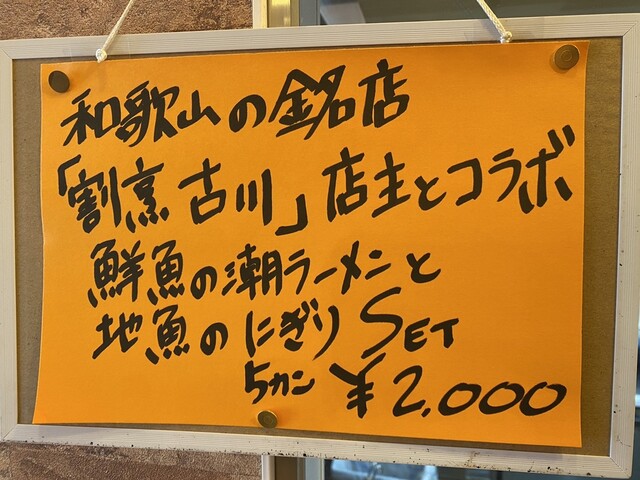 和歌山の銘店
「割烹 古川」店主とコラボ
鮮魚の潮ラーメンと
地魚のにぎりSET
5カン ¥2,000